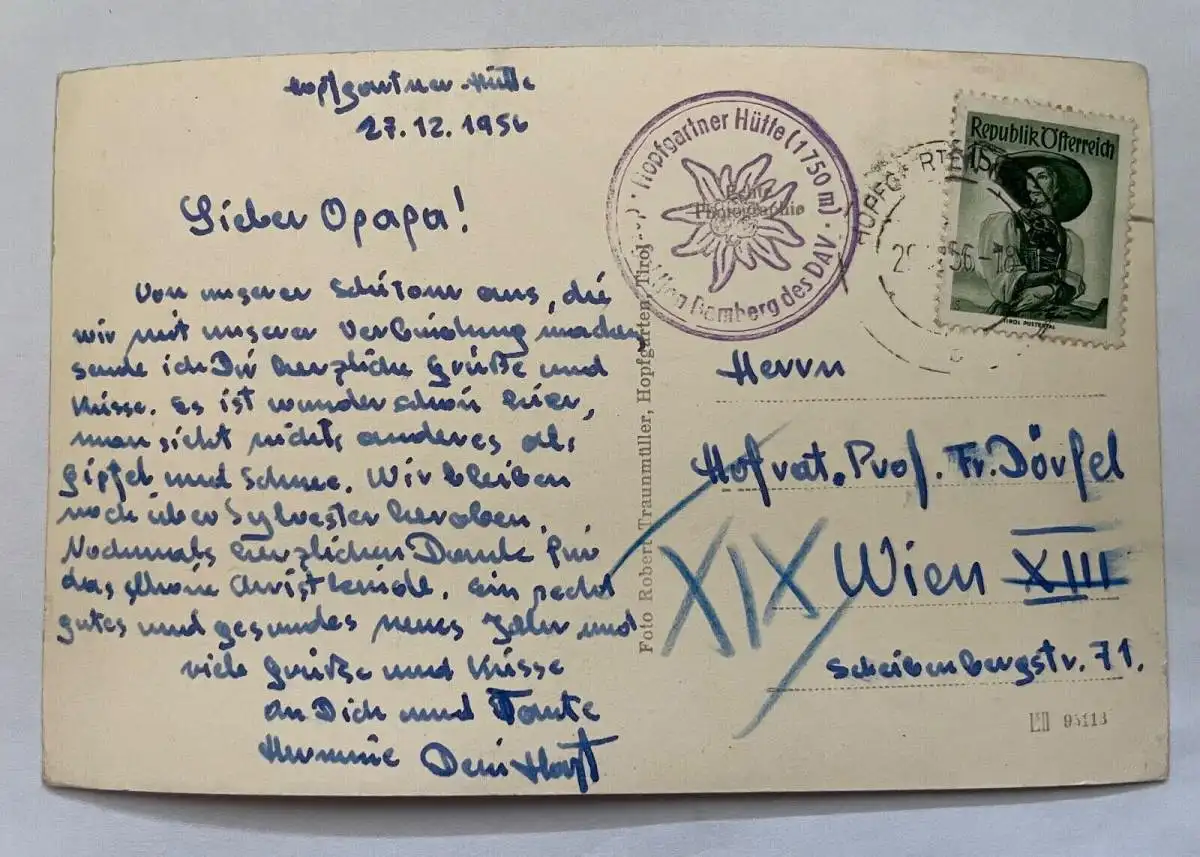 Hopfgartner-Hütte
27.12.1956
Lieber Opapa!
Von unserer Schitour aus, die
wir mit unserer Verbindung machen
sende ich Dir herzliche Grüße und
Küsse. Es ist wunderschön hier,
man sieht nichts anderes als
Gipfel und Schnee. Wir bleiben
noch über Sylvester heroben.
Nochmals herzlichen Dank für
das schöne Christkindl. Ein recht
gutes und gesundes neues Jahr und
viele Grüße und Küsse
an Dich und Tante
Hermine Dein
Hopfgartner Hütte (1750 m)
Bamberg des DAV
Echte
Photographie
HOPFGARTEN
56.-18
Republik Österreich
TIROL PUSTERTAL
Foto Robert Traunmüller, Hopfgarten, Tirol
Herrn
Hofrat. Prof. Fr. Dörfel
XIX Wien XIII
Scheibenbergstr. 71.